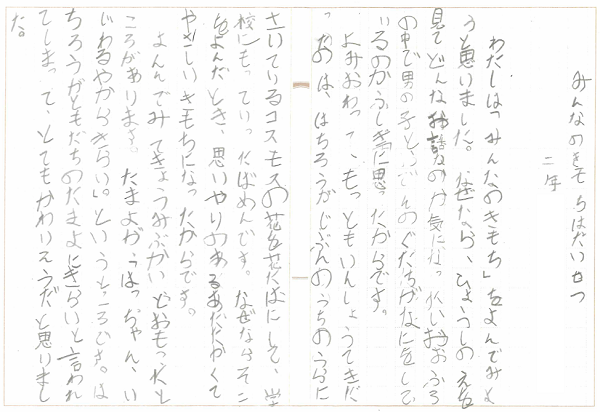 みんなのきもちはだいせつ
二年
わたしは「みんなのきもち」をよんでみよ
うと思いました。なぜなら、ひょうしのえを
見てどんなお話なのか気になって、いえのおふろ
の中で男の子と
いるのかふしぎに思ったからです。
よみおわって、もっともいんしょうてきだ
ったのは、はちろうがじぶんのうちのうらに
さいているコスモスの花を花たばにして、学
校にもっていったばめんです。なぜならそこ
をよんだとき、思いやりのあるあたたかくて
やさしいきもちになったからです。
よんでみてきょうみぶかいとおもったと
ころがあります。たまよが「はっちゃん、い
じわるやからきらい。」というところです。は
ちろうがともだちのたまよにきらいと言われ
てしまって、とてもかわいそうだと思いまし
た。